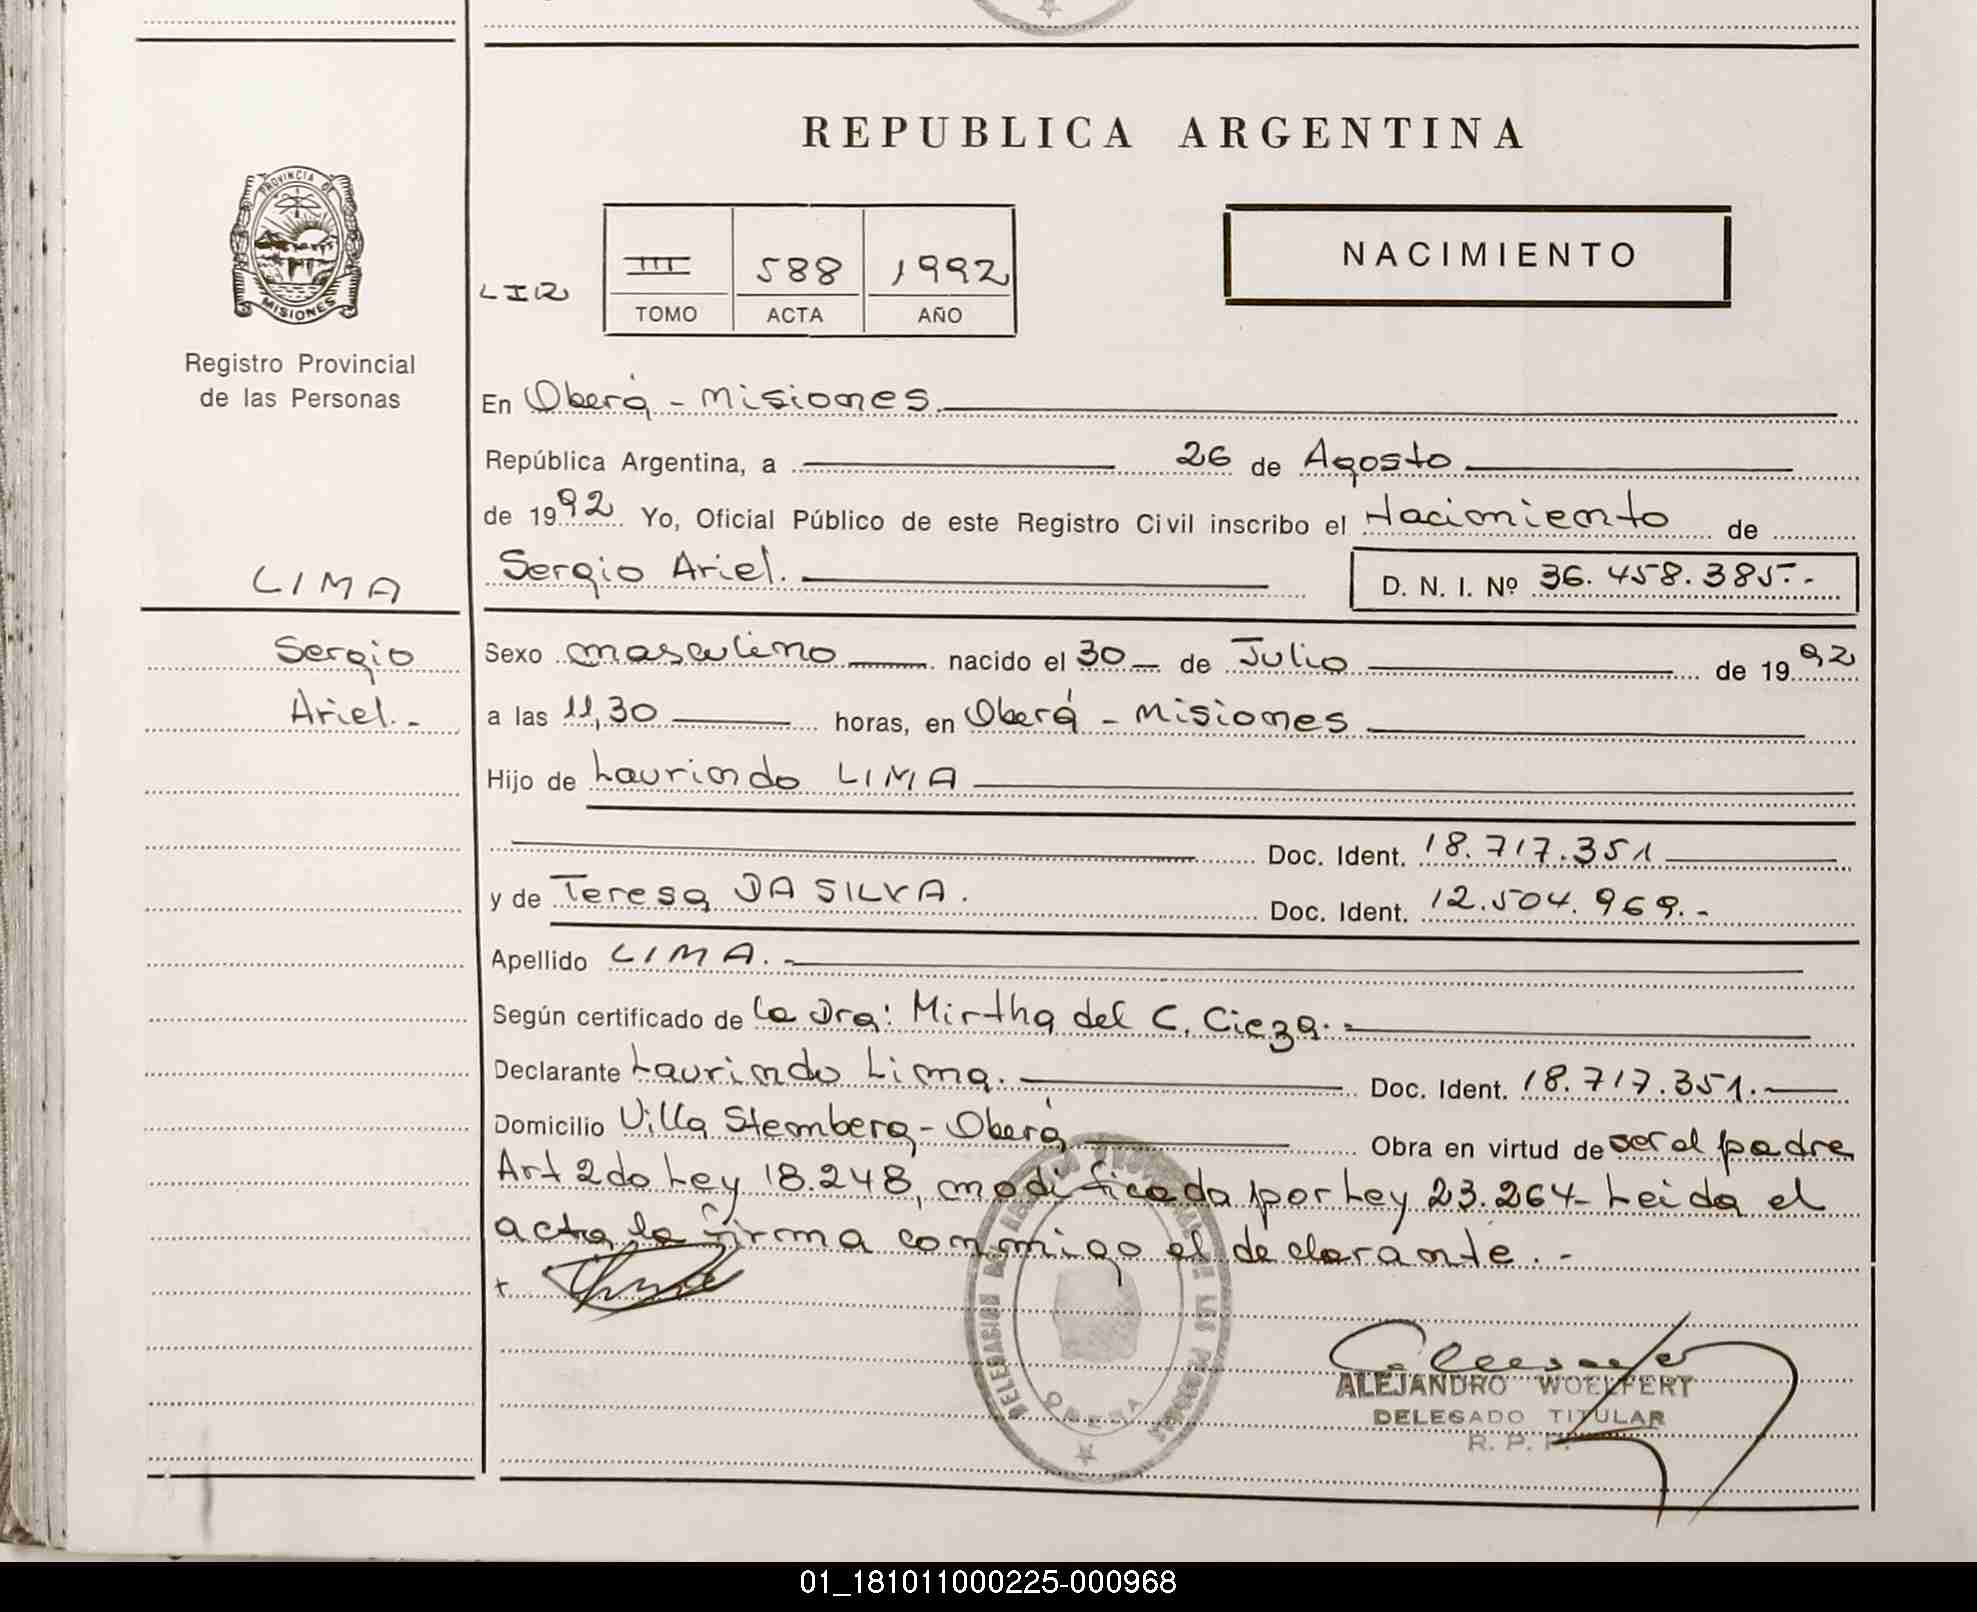 REPUBLICA ARGENTINA
PROVINCIA DE
MISIONES
Registro Provincial
de las Personas
III 588 1992
TOMO ACTA AÑO
NACIMIENTO
En Oberá - Misiones
República Argentina, a 26 de Agosto
de 1992 Yo, Oficial Público de este Registro Civil inscribo el Nacimiento de
Sergio Ariel. D. N. I. Nº 36.458.385.-
LIMA
Sergio
Ariel.-
Sexo masculino nacido el 30 de Julio de 1992
a las 11,30 horas, en Oberá - Misiones
Hijo de Laurindo LIMA
Doc. Ident. 18.717.351
y de Teresa DA SILVA. Doc. Ident. 12.504.969.-
Apellido LIMA.-
Según certificado de la Dra: Mirtha del C. Cieza.-
Declarante Laurindo Lima. Doc. Ident. 18.717.351.
Domicilio Villa Stemberg - Oberá Obra en virtud de ser el padre
Art 2do Ley 18.248, modificada por Ley 23.264- Leida el
acta la firma conmigo el declarante.-
DELEGACION DEL REGISTRO PROVINCIAL DE LAS PERSONAS
OBERA
ALEJANDRO WOELFERT
DELEGADO TITULAR
R. P. P.
01_181011000225-000968